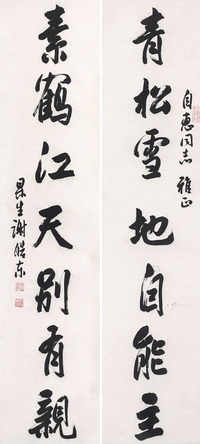 青松雪地自能主
自惠同志雅正
素鶴江天別有親
果生謝皓东